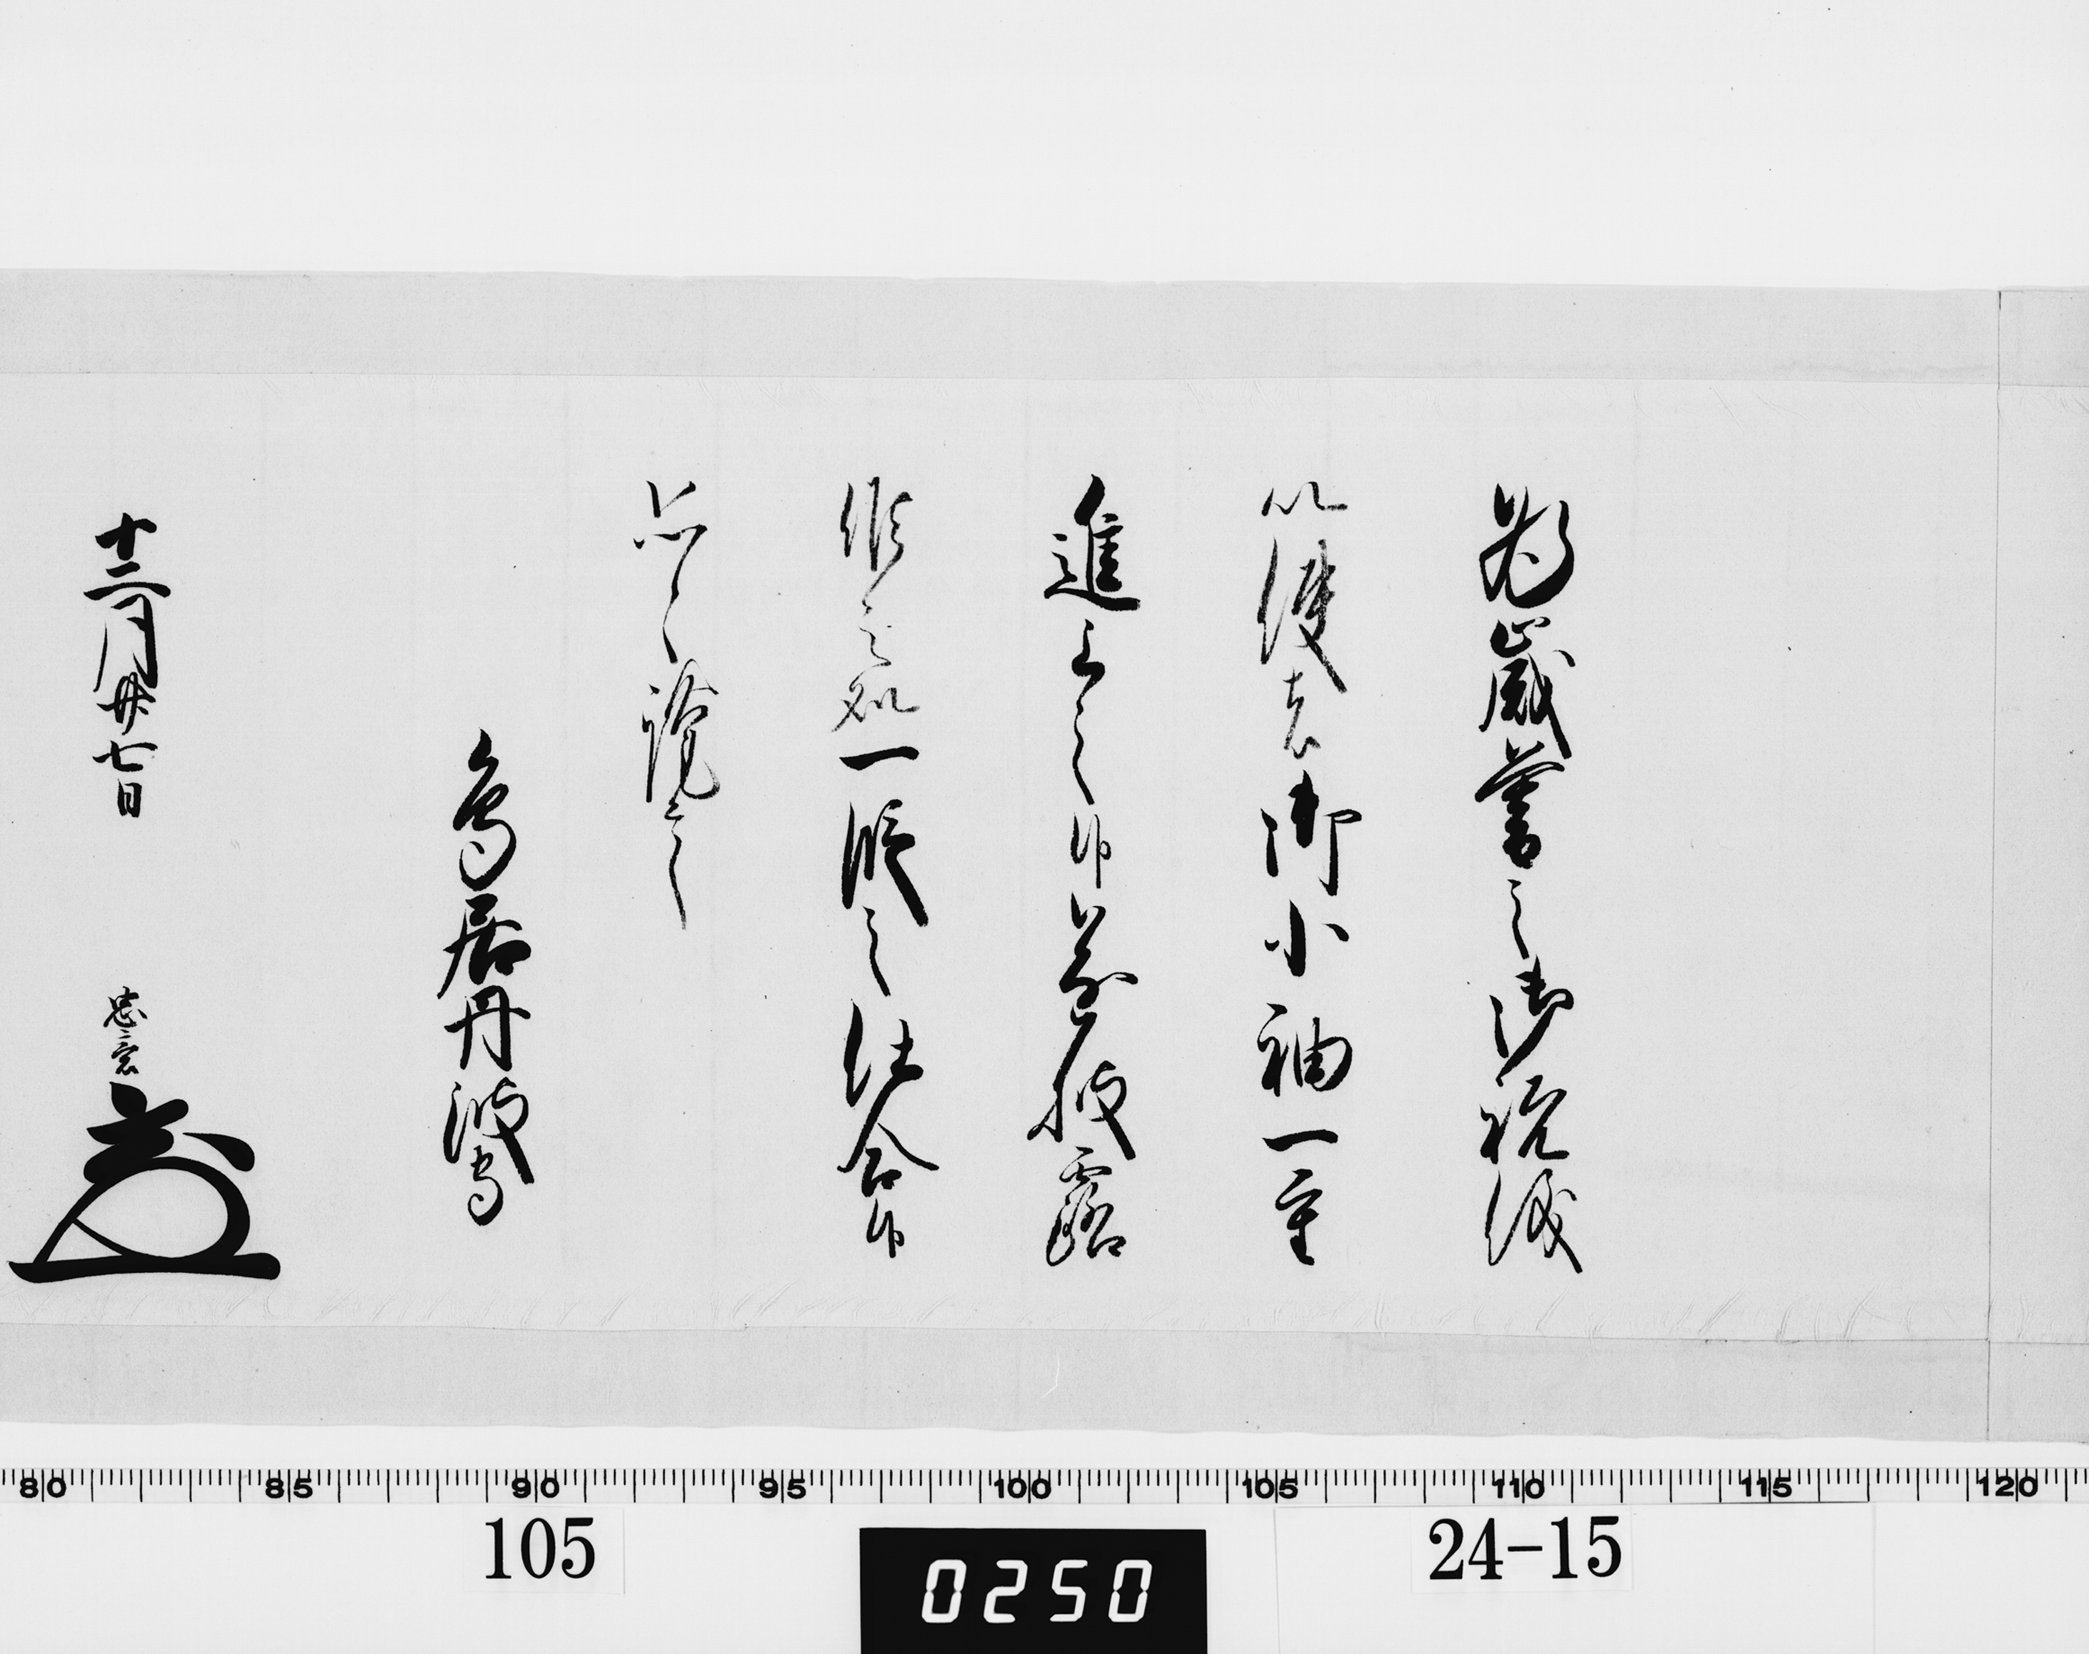 為歳暮之御祝儀
以使者御小袖一重
進上之候遂披露
候之処一段之仕合候
恐々謹言
鳥居丹波守
十二月廿七日 忠意
80 85 90 95 100 105 110 115 120
105 0250 24-15